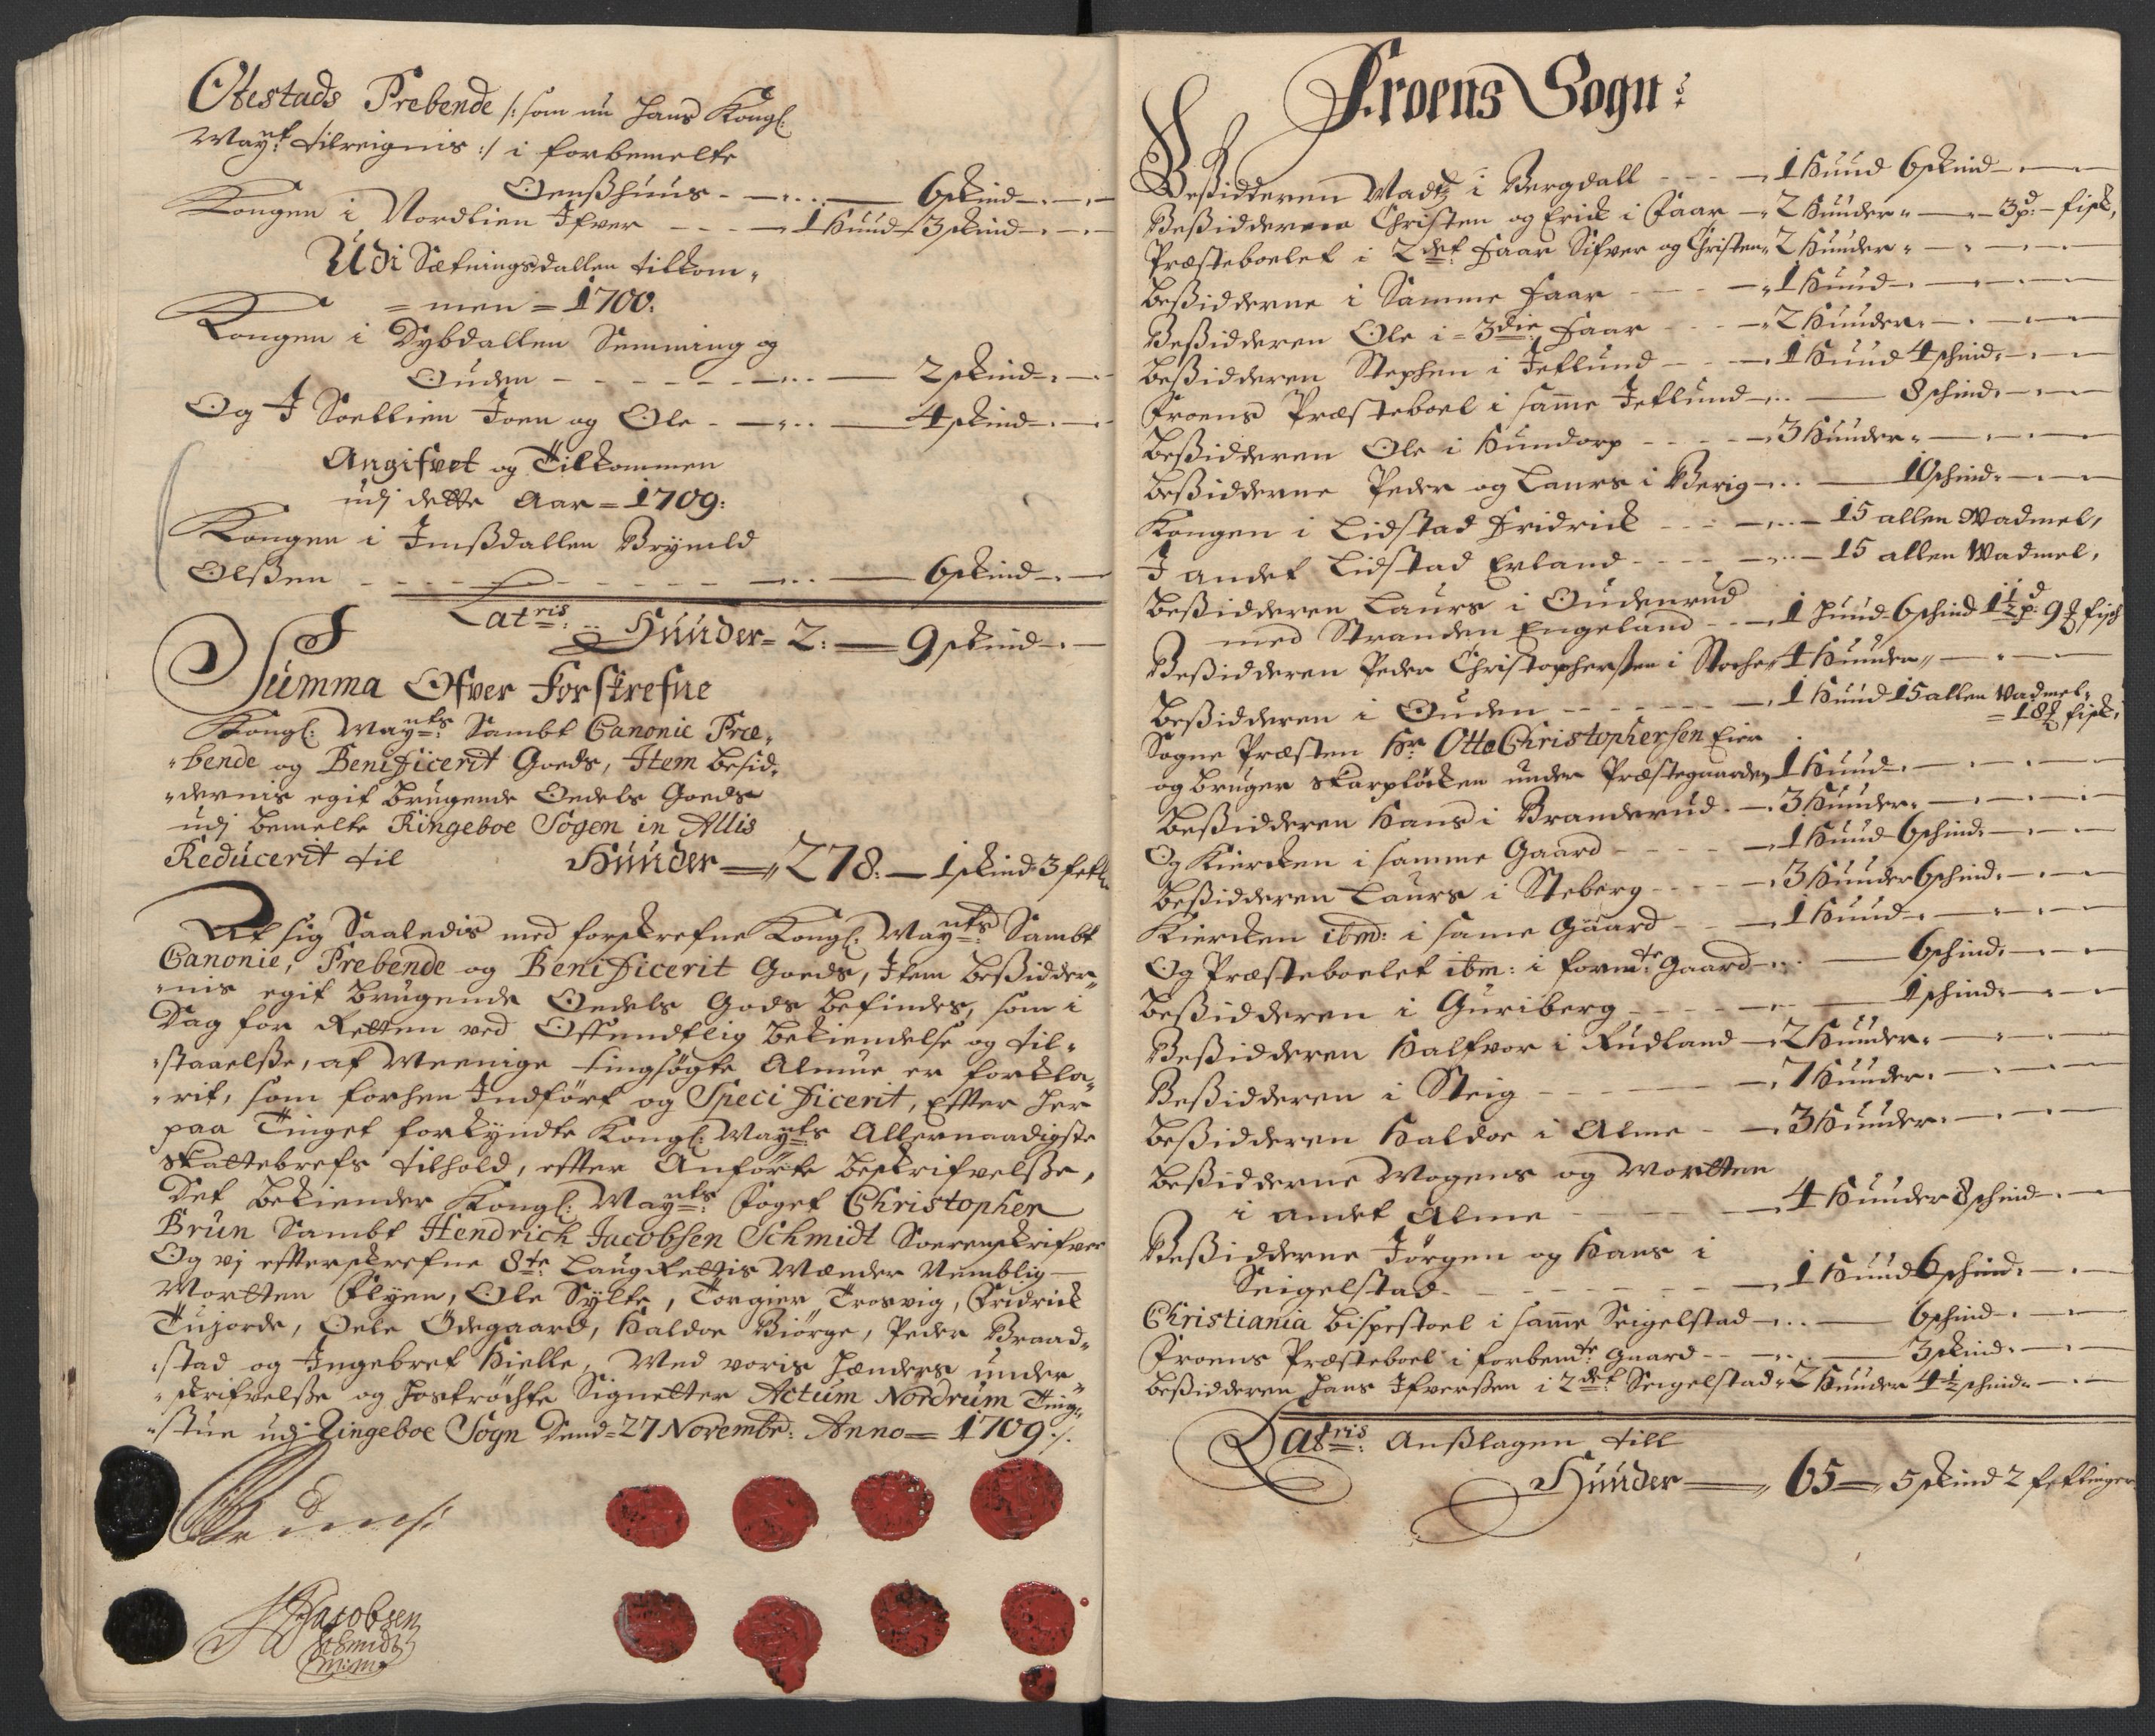 Otestads Prebende /: som nu Hans Kongl:
Maÿtt tilreignis :/ i forbemelte
Oenßhuus - 6 skind
Kongen i Nordlien Ifver - 1 Hund 3 skind
Udi Sætningsdallen tilkom-
= men = 1700:
Kongen i Dybdallen Semming og
Ouden - 2 skind
Og I Soellien Joen og Ole - 4 skind
Angifvet og Tilkommen
udj dette Aar = 1709:
Kongen i Imßdallen Brÿnild
Olßen - 6 skind
Latris: Hunder = 2: — 9 skind
Summa Ofver Forskrefne
Kongl: Maÿtts: Sambt Canonie Præ-
bende og Benificerit Goeds, Item Besid-
dernis egit brugende Oedels Goeds
udj bemelte Ringeboe Sogen in Allis
Reducerit til Hunder = 278: — 1 skind 3 fetl
At sig Saaledis med forskrefne Kongl: Maÿtts Sambt
Canonie, Prebende og Benificerit Goeds, Item Beßidder-
nis egit brugende Oedels Gods befindes, som i
Dag for Retten ved Offendtlig bekiendelse og til-
staaelße, af Meenige tingsøgte Almue er forkla-
rit, som forhen Indført og Specificerit, efter her
paa Tinget forkyndte Kongl: Maÿtts Allernaadigste
Skattebrefs tilhold, effter Anførte beskrifvelße,
Det bekiender Kongl: Maÿtts: Foget Christopher
Brun Sambt Hendrich Jacobsen Schmidt Sorenskrifver
Og vj effterskrefne 8te Laugrettis Mænder Nemblig
Mortten Flyen, Ole Sylte, Torgier Trosvig, Fridrick
Tujorde, Oele Ödegaard, Haldor Biørge, Peder Braad-
stad og Ingebret Hielle, Med voris Hænders under-
skrifvelße og hostrøchte Signetter Actum Nordrum Ting-
stue udj Ringeboe Sogn Dend = 27 Novembr: Anno = 1709 ./.
CBrun
HJacobsen
Schmidt
Froens Sogn:
Beßidderen Madtz i Bergdall - 1 Hund 6 skind
Beßidderene Christen og Erick i Faar - 2 Hunder - 3 pd: fisk,
Præsteboelet i 2det Faar Sifver og Christen 2 Hunder
Beßidderne i Samme Faar - 1 Hund
Beßidderen Ole i = 3die Faar - 2 Hunder
Beßidderen Stephen i Jetlund - 1 Hund 4 skind
Froens Præsteboel i samme Jetlund - 8 skind
Beßidderen Ole i Hundorp - 3 Hunder
Beßidderne Peder og Laurs i Berig - 10 skind
Kongen i Lidstad Fridrick - 15 allen Wadmel,
I andet Lidstad Erland - 15 allen Wadmel,
Beßidderen Laurs i Oudenrud
med Stranden Engeland - 1 Hund 6 skind 1½ pd: 9 ℔ fisk
Beßidderen Peder Christophersen i Stoche 4 Hunder
Beßidderen i Ouden - 1 Hund 15 allen Wadmel-
= 18 ℔ fisk,
Sogne Præsten Hr: Otto Christophersen Eier
og bruger Skarpløcken under Præstegaarden 1 Hund
Beßidderen Hans i Branderud - 3 Hunder
Og Kiercken i samme Gaard - 1 Hund 6 skind
Beßidderen Laurs i Steberg - 3 Hunder 6 skind
Kiercken ibm: i same Gaard - 1 Hund
Og Præsteboelet ibm: i formte: Gaard - 6 skind
Beßidderen i Guriberg - 1 skind
Beßidderen Halfvor i Rudland - 2 Hunder
Beßidderen i Steig - 7 Hunder
Beßidderen Haldor i Alme - 3 Hunder
Beßidderne Mogens og Mortten
i andet Alme - 4 Hunder 8 skind
Beßidderne Jørgen og Hans i
Seigelstad - 1 Hund 6 skind
Christiania Bispestoel i samme Seigelstad - 6 skind
Froens Præsteboel i forbemte Gaard - 3 skind
Beßidderen Hans Ifverßen i 2det Seigelstad 2 Hunder 4½ skind
Latris: Anßlagen till
Hunder = 65 = 5 skind 2 fetlinger